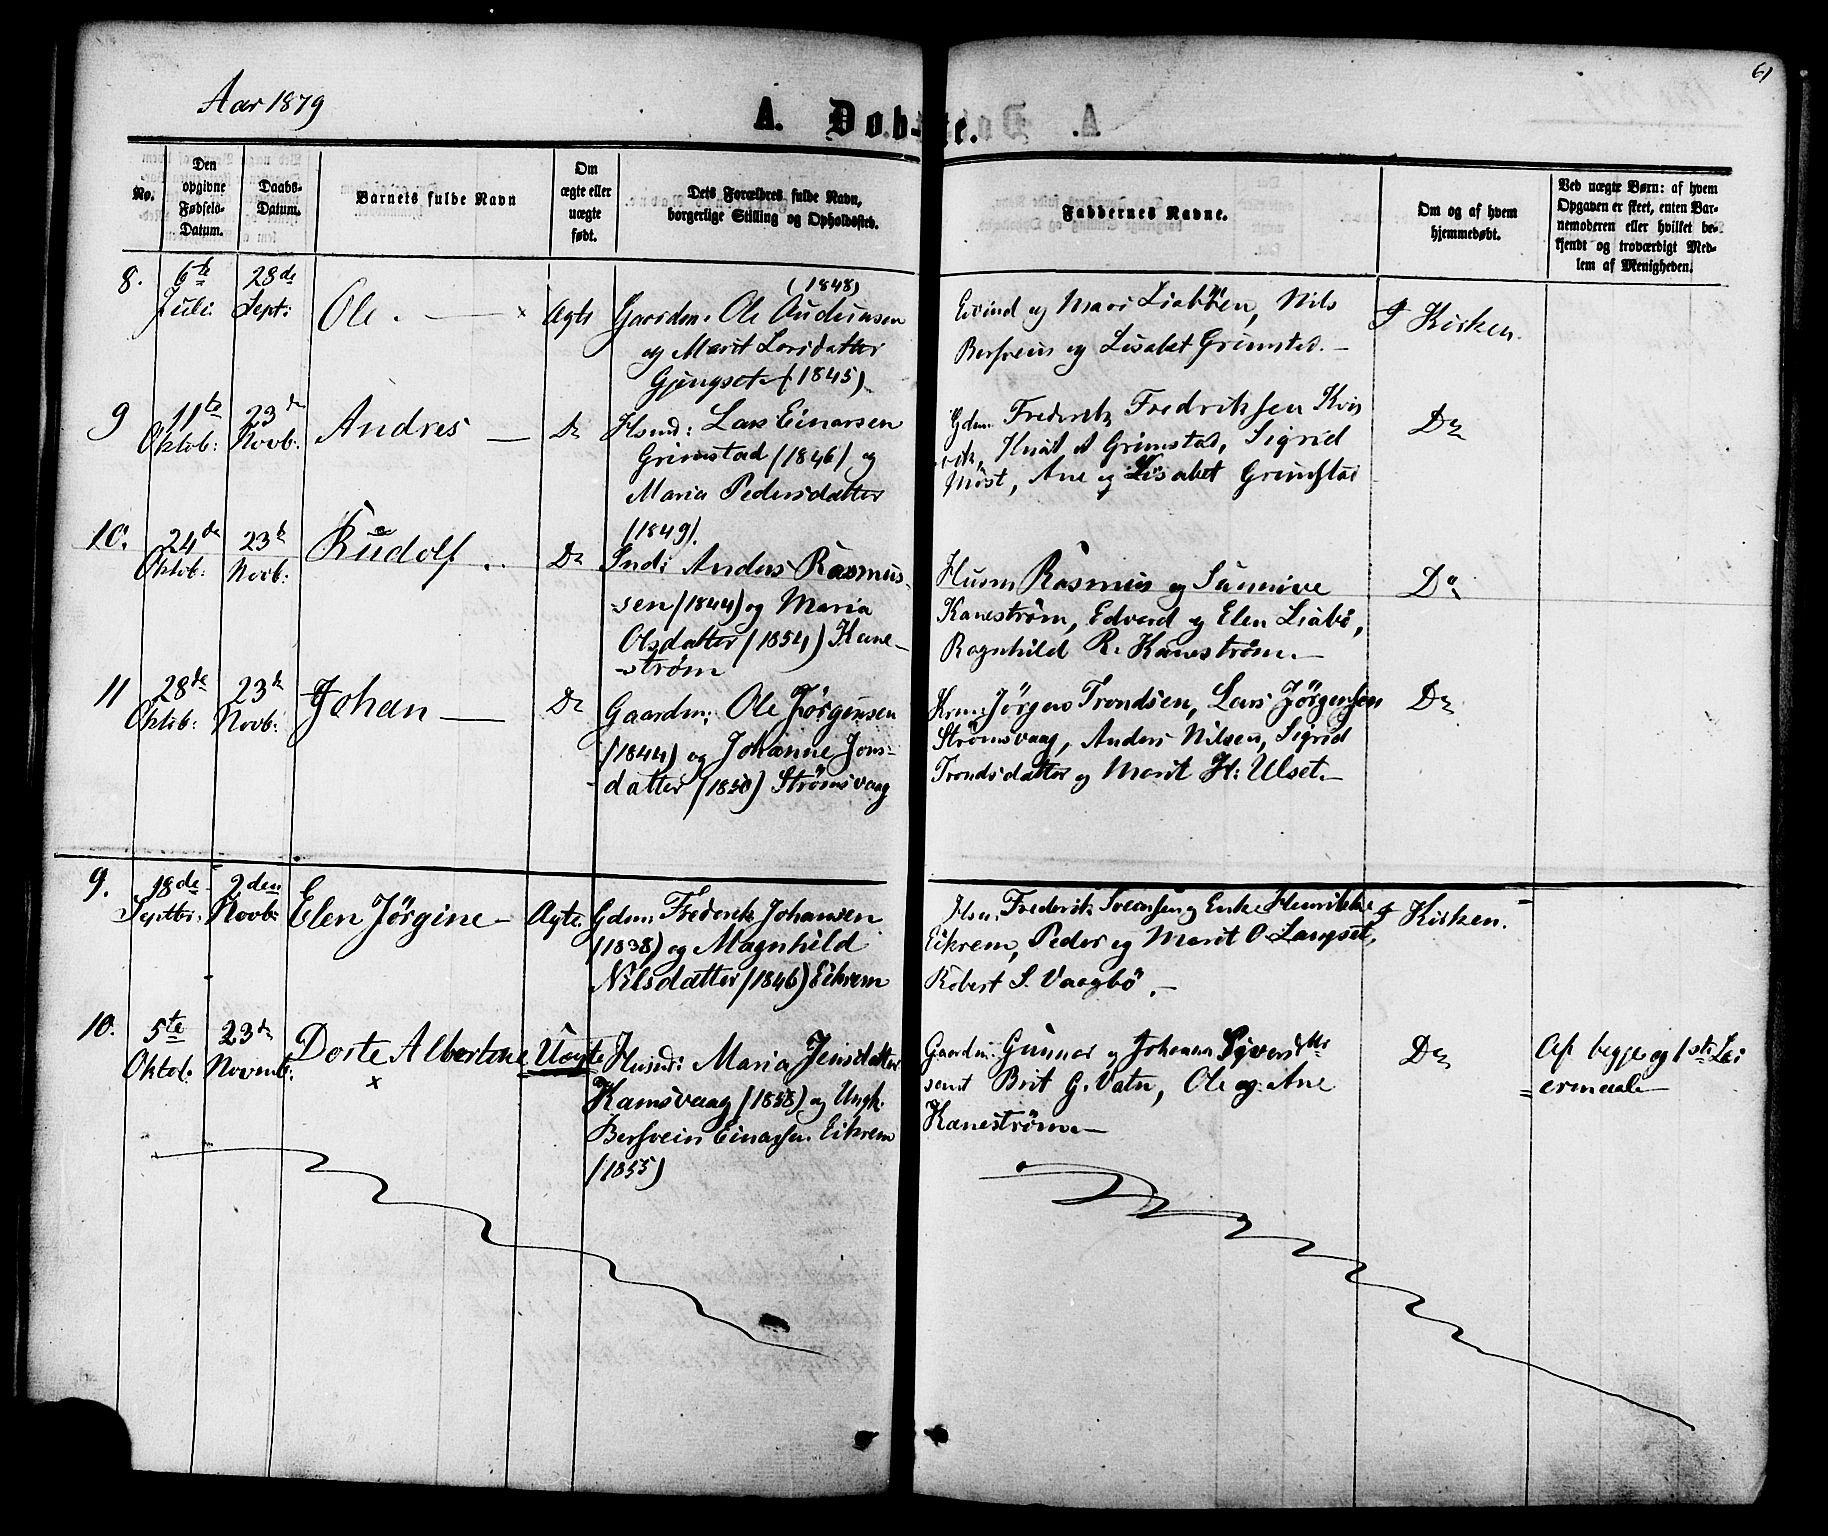 61
Aar 1879
A. Døbte.
No.
Den
opgivne
Fødsels-
Datum.
Daabs-
Datum.
Barnets fulde Navn
Om
ægte eller
uægte
født.
Dets Forældres fulde Navn,
borgerlige Stilling og Opholdssted.
Faddernes Navne.
Om og af hvem
hjemmedøbt.
Ved uægte Børn: af hvem
Opgaven er skeet, enten Bar-
nemoderen eller hvilket be-
kjendt og troværdigt Med-
lem af Menigheden.
8.
6te
Juli:
28de
Sept:
Ole.
Ægte
(1848)
Gaardm: Ole Audunsen
og Marit Larsdatter
Gjengset (1845)
Eivind og Mari Liabøen, Nils
Bersvein og Lisabet Grimstad.
I Kirken.
9
11te
Oktob:
23de
Novb:
Andres
Do
Husmd: Lars Einarsen
Grimstad (1846) og
Maria Pedersdatter
(1849).
Gdm: Frederik Fredriksen
Grimstad, Sigrid
Ane og Lisabet Grimstad
Do
10.
24de
Oktob:
23de
Novb:
Rudolf
Do
Ind: Anders Rasmus-
sen (1844) og Maria
Olsdatter (1854) Kane-
strøm
Husm Rasmus og Sünnive
Kanestrøm, Edvard og Elen Liabø,
Ragnhild R. Kanestrøm.
Do
11
28de
Oktob:
23de
Novb:
Johan
Do
Gaardm: Ole Jørgensen
(1844) og Johanne Jons-
datter (1850) Strømsvaag
Jørgen Trondsen, Lars Jørgensen
Strømsvaag, Anders Nilsen, Sigrid
Trondsdatter og Marit H: Ulset.
Do
9.
18de
Septbr:
2den
Novb:
Elen Jørgine
Ægte.
Gdm: Frederik Johansen
(1838) og Magnhild
Nilsdatter (1846) Eikrem
Frederik Sveinsen og Enke Henrikke
Eikrem, Peder og Marit O. Langset,
Robert S. Vaagbø.
I Kirken.
10.
5te
Oktob:
23de
Novemb:
Dorte Albertine
x
Uægte
Husmd: Maria Jensdatter
Ramsvaag (1858) og Ungk.
Bersvein Einarsen Eikrem
(1855)
Gaardm: Gunnar og Johanna Syversdtr
samt Brit G. Vatn, Ole og Ane
Kanestrøm.
Do
Af begge og 1ste Lei
ermaal